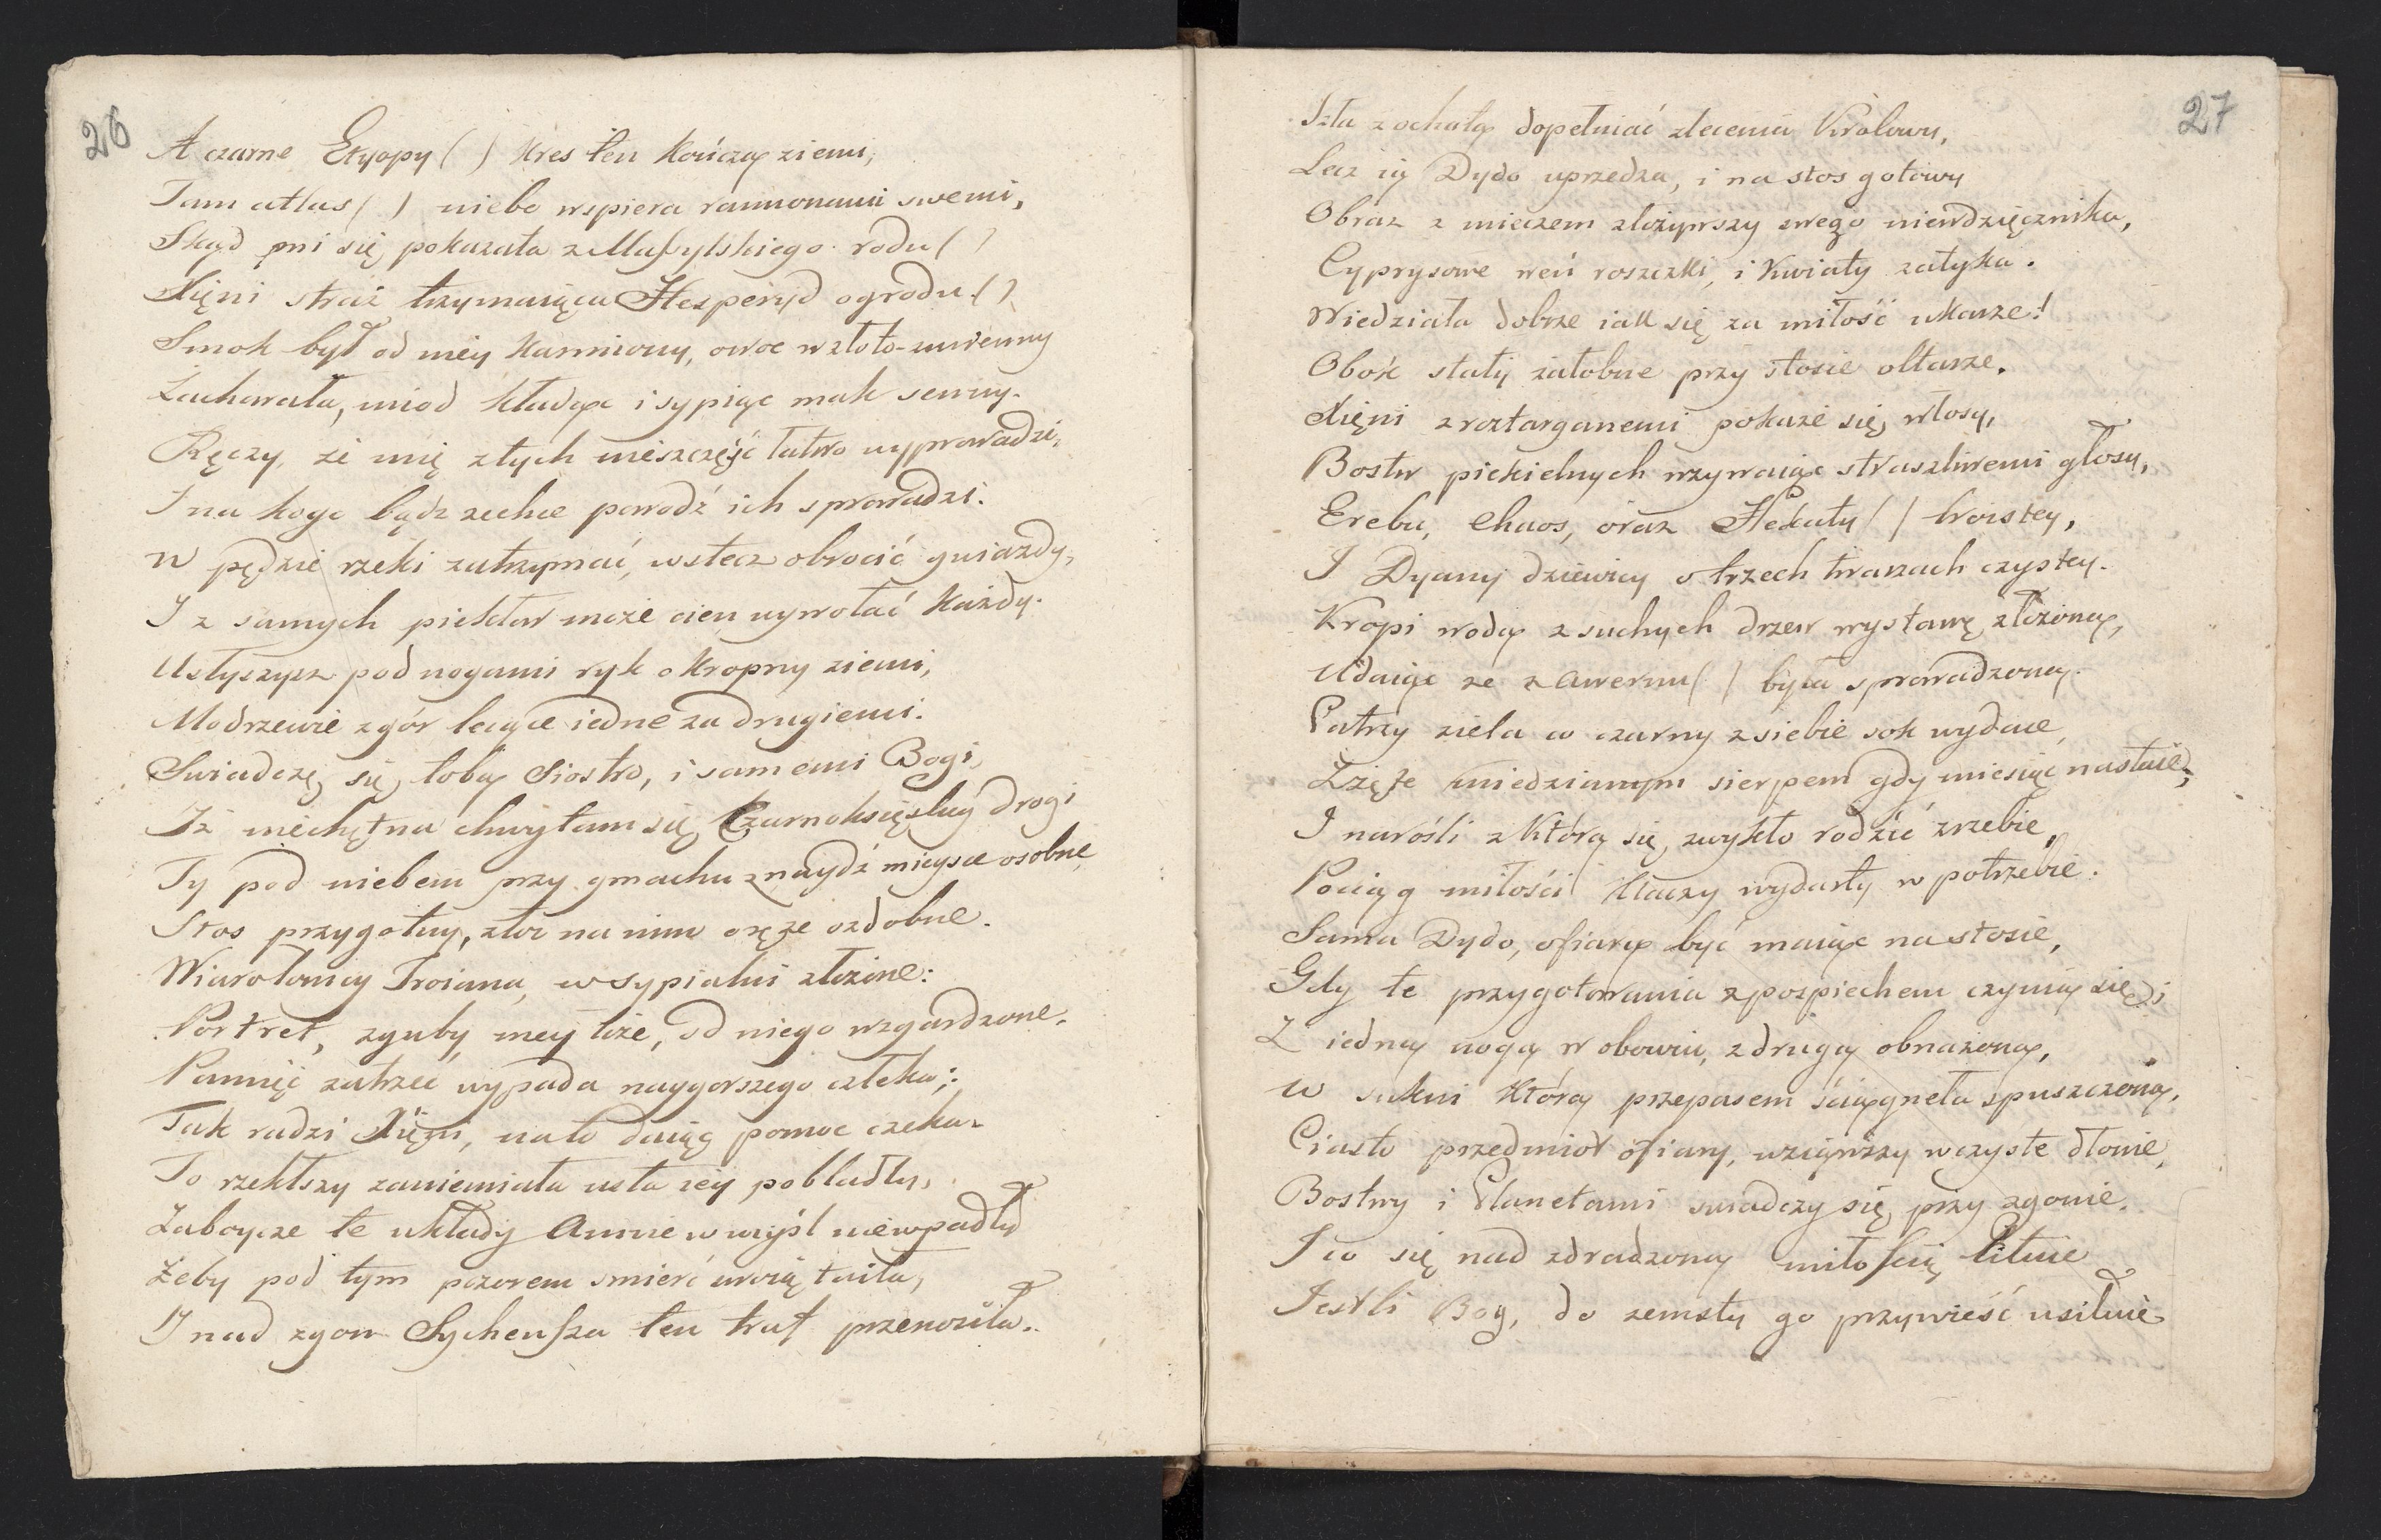 26
A czarne Etyopy ( ) kres ten kończą ziemi,
Tam atlas ( ) niebo wspiera ramionami swemi,
Skąd pni się pokazała z Massylskiego rodu ( )
Xięni straż trzymaiąca Hesperyd ogrodu ( )
Smok był od niey karmiony, owoc w złoto-zmienny
Zachowała, miod kładąc i sypiąc mak senny.
Ręczy, że mię z tych nieszczęść łatwo wyprowadzi,
I na kogo bądz zechce powodź ich sprowadzi.
W pędzie rzeki zatrzymać, wstecz obrocić gwiazdy,
I z samych piekłow może cien wywołać każdy.
Usłyszysz pod nogami ryk okropny ziemi,
Modrzewie z gór lecące iedne za drugiemi.
Swiadczę się tobą Siostro, i samemi Bogi,
Iż niechętna chwytam się Czarnoksięskiy drogi
Ty pod niebem przy gmachu znaydź mieysce osobne
Stos przygotuy, złoż na nim oręże ozdobne.
Wiarołomcy Troiana, w sypialni złożone:
Portret, zguby mey łoże, od niego wzgardzone.
Pamięć zatrzeć wypada naygorszego człeka;
Tak radzi Xięni, na to daiąc pomoc czeka.
To rzekłszy zaniemiała usta iey pobladły,
Zaboycze te układy Annie w myśl niewpadły
Żeby pod tym pozorem smierć swoię taiła,
I nad zgon Sycheussza ten traf przenosiła.
27
Szła z ochotą dopełniać zlecenia Krolowy,
Lecz ią Dydo uprzedza, i na stos gotowy
Obraz z mieczem złożywszy swego niewdzięcznika,
Cyprysowe weń roszczki, i kwiaty zatyka.
Wiedziała dobrze iak się za miłość ukarze!
Obok stały żałobne przy stosie ołtarze.
Xięni z roztarganemi pokaże się włosy,
Bostw piekielnych wzywaiąc straszliwemi głosy,
Erebu, Chaos, oraz Hekaty ( ) troistey,
I Dyany dziewicy o trzech twarzach czystey.
Kropi wodą z suchych drzew wystawę złożoną,
Udaiąc że z Awernu ( ) była sprowadzoną.
Patrzy ziela co czarny z siebie sok wydaie,
Zżęte miedzianym sierpem gdy miesiąc nastaie,
I narośli z którą się zwykło rodzić zrzebie,
Pociąg miłości klaczy wydarty w potrzebie.
Sama Dydo, ofiarą być maiąc na stosie,
Gdy te przygotowania z pospiechem czynią się
Z iedną nogą w obowiu, z drugą obnażoną,
W sukni którą przepasem ściągneła spuszczoną,
Ciasto przedmiot ofiary, wziąwszy w czyste dłonie,
Bostwy i Planetami swiadczy się przy zgonie.
I co się nad zdradzoną miłością lituie
Iestli Bog, do zemsty go przywieść usiłuie